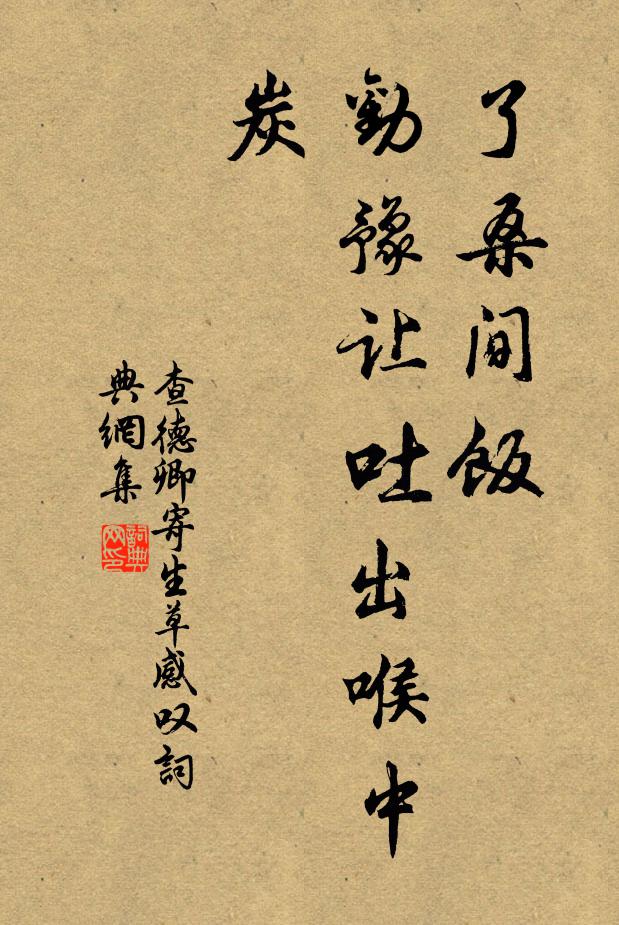 了桑间飯
勸豫让吐出喉中
炭
查德卿寄生草感叹詞
典網集
詞典网印